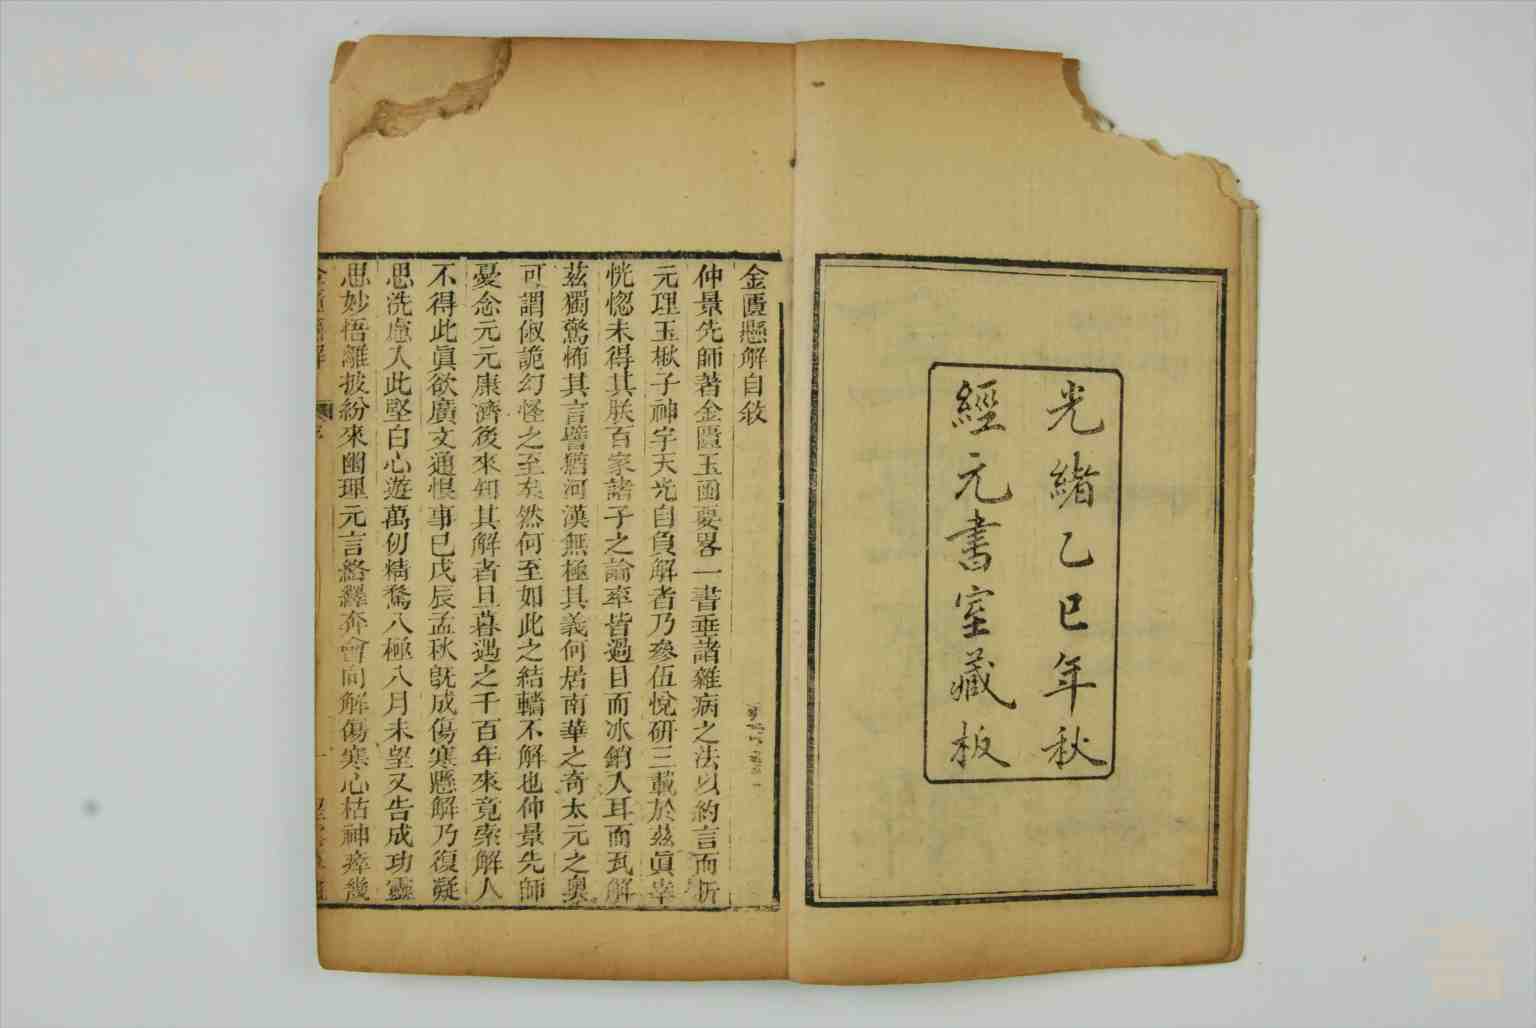 光緒乙巳年秋
經元書室藏板
金匱懸解自敘
仲景先師著金匱玉函要畧一書垂諸雜病之法以約言而析
元理玉楸子神宇天光自負解者乃參伍悅研三載於茲眞幸
恍惚未得其朕百家諸子之論率皆過目而冰銷入耳而瓦解
茲獨驚怖其言譬猶河漢無極其義何居南華之奇太元之奧
可謂俶詭幻怪之至矣然何至如此之結轖不解也仲景先師
憂念元元康濟後來知其解者旦暮遇之千百年來竟索解人
不得此眞欲廣文通恨事已戊辰孟秋旣成傷寒懸解乃復凝
思洗慮入此堅白心遊萬仞精騖八極八月未望又告成功靈
思妙悟離披紛來幽理元言絡繹奔會向解傷寒心枯神瘁幾